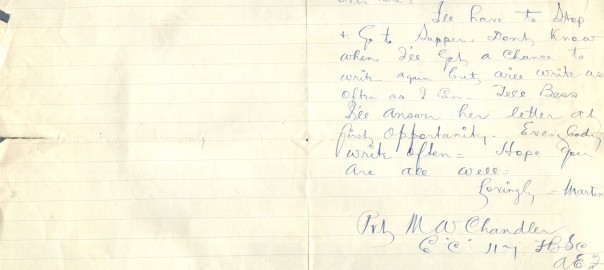 I'll have to Stop
& Go to Supper. Don't Know
when I'll Get a Chance to
write again but will write as
often as I can. Tell Bess
I'll Answer her letter at
first opportunity. Every body
write often = Hope you
are all well =
Lovingly = Martin
Pvt M W Chandler
Co "C" 117
A.E.F